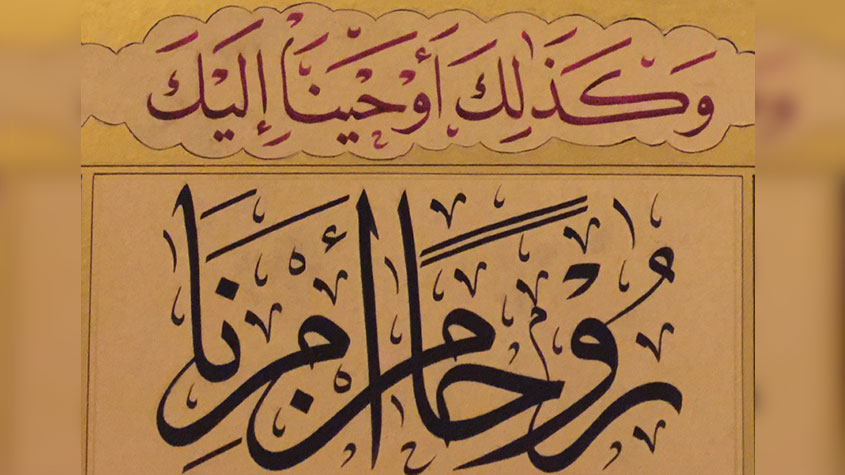 وَكَذَٰلِكَ أَوْحَيْنَا إِلَيْكَ
رُوحًا مِنْ أَمْرِنَا